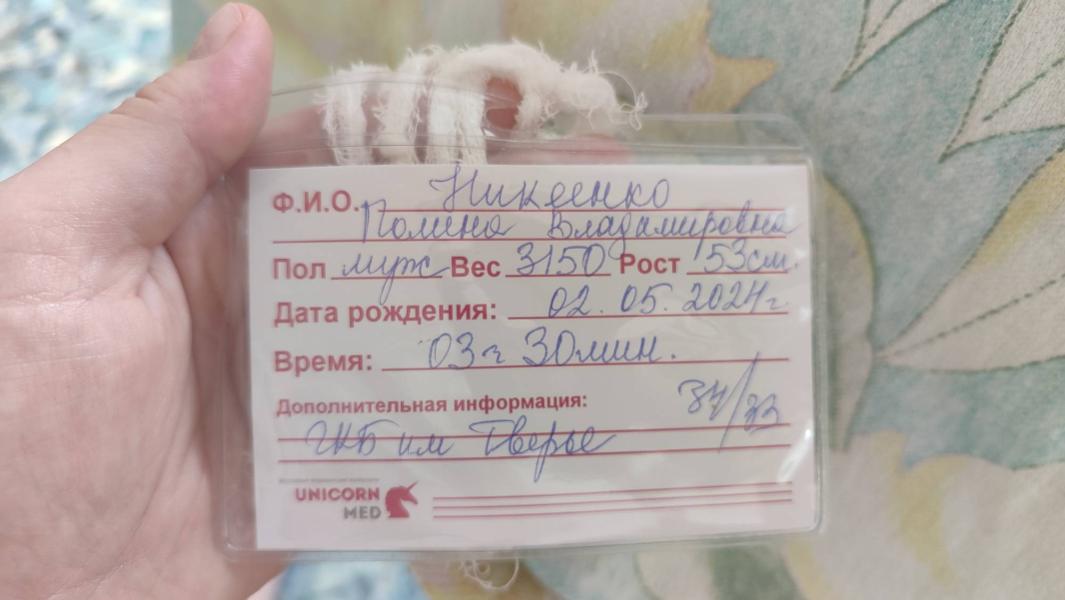 Ф.И.О. Никеенко
Полина Владимировна
Пол муж Вес 3150 Рост 53см.
Дата рождения: 02.05.2024г.
Время: 03ч 30мин.
Дополнительная информация: 34/33
ГКБ им Тверье
UNICORN
MED